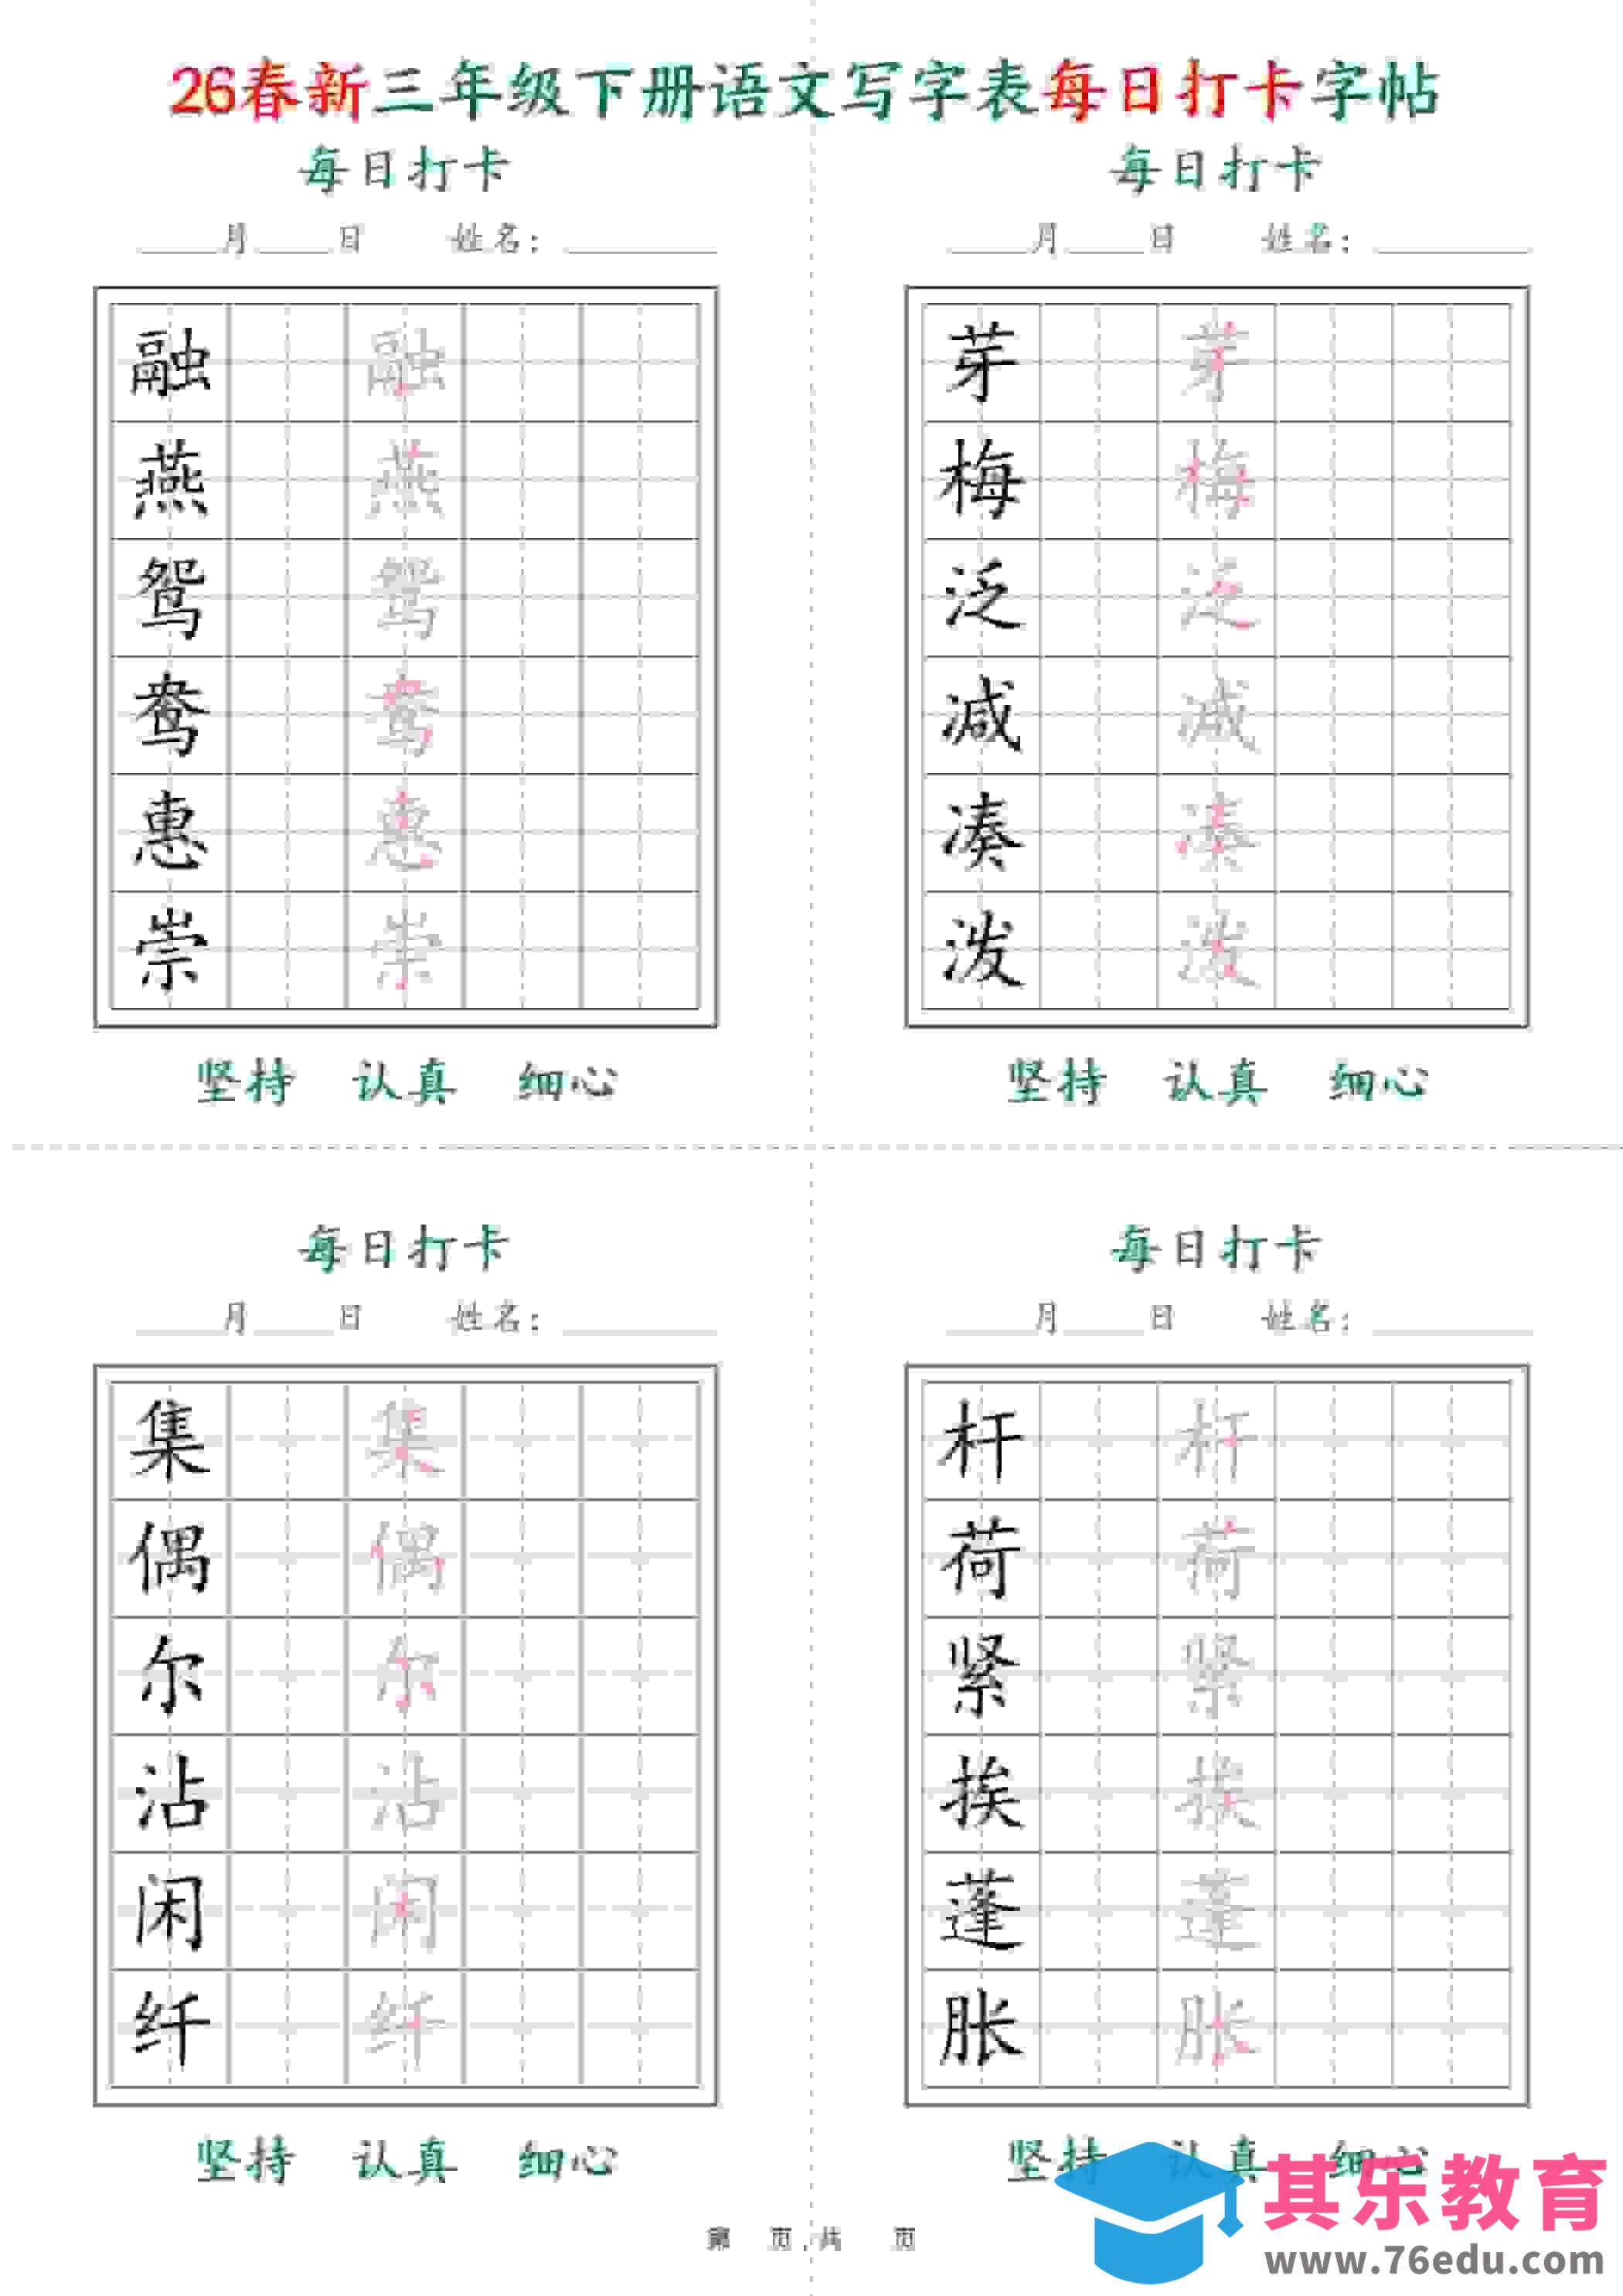 26春新三年级下册语文写字表每日打卡字帖
每日打卡
____月____日 姓名：________
融 融
燕 燕
鸳 鸳
鸯 鸯
惠 惠
崇 崇
坚持 认真 细心
每日打卡
____月____日 姓名：________
芽 芽
梅 梅
泛 泛
减 减
凑 凑
泼 泼
坚持 认真 细心
每日打卡
____月____日 姓名：________
集 集
偶 偶
尔 尔
沾 沾
闲 闲
纤 纤
坚持 认真 细心
每日打卡
____月____日 姓名：________
杆 杆
荷 荷
紧 紧
挨 挨
蓬 蓬
胀 胀
坚持 认真 细心
第 页,共 页
其乐教育
www.76edu.com